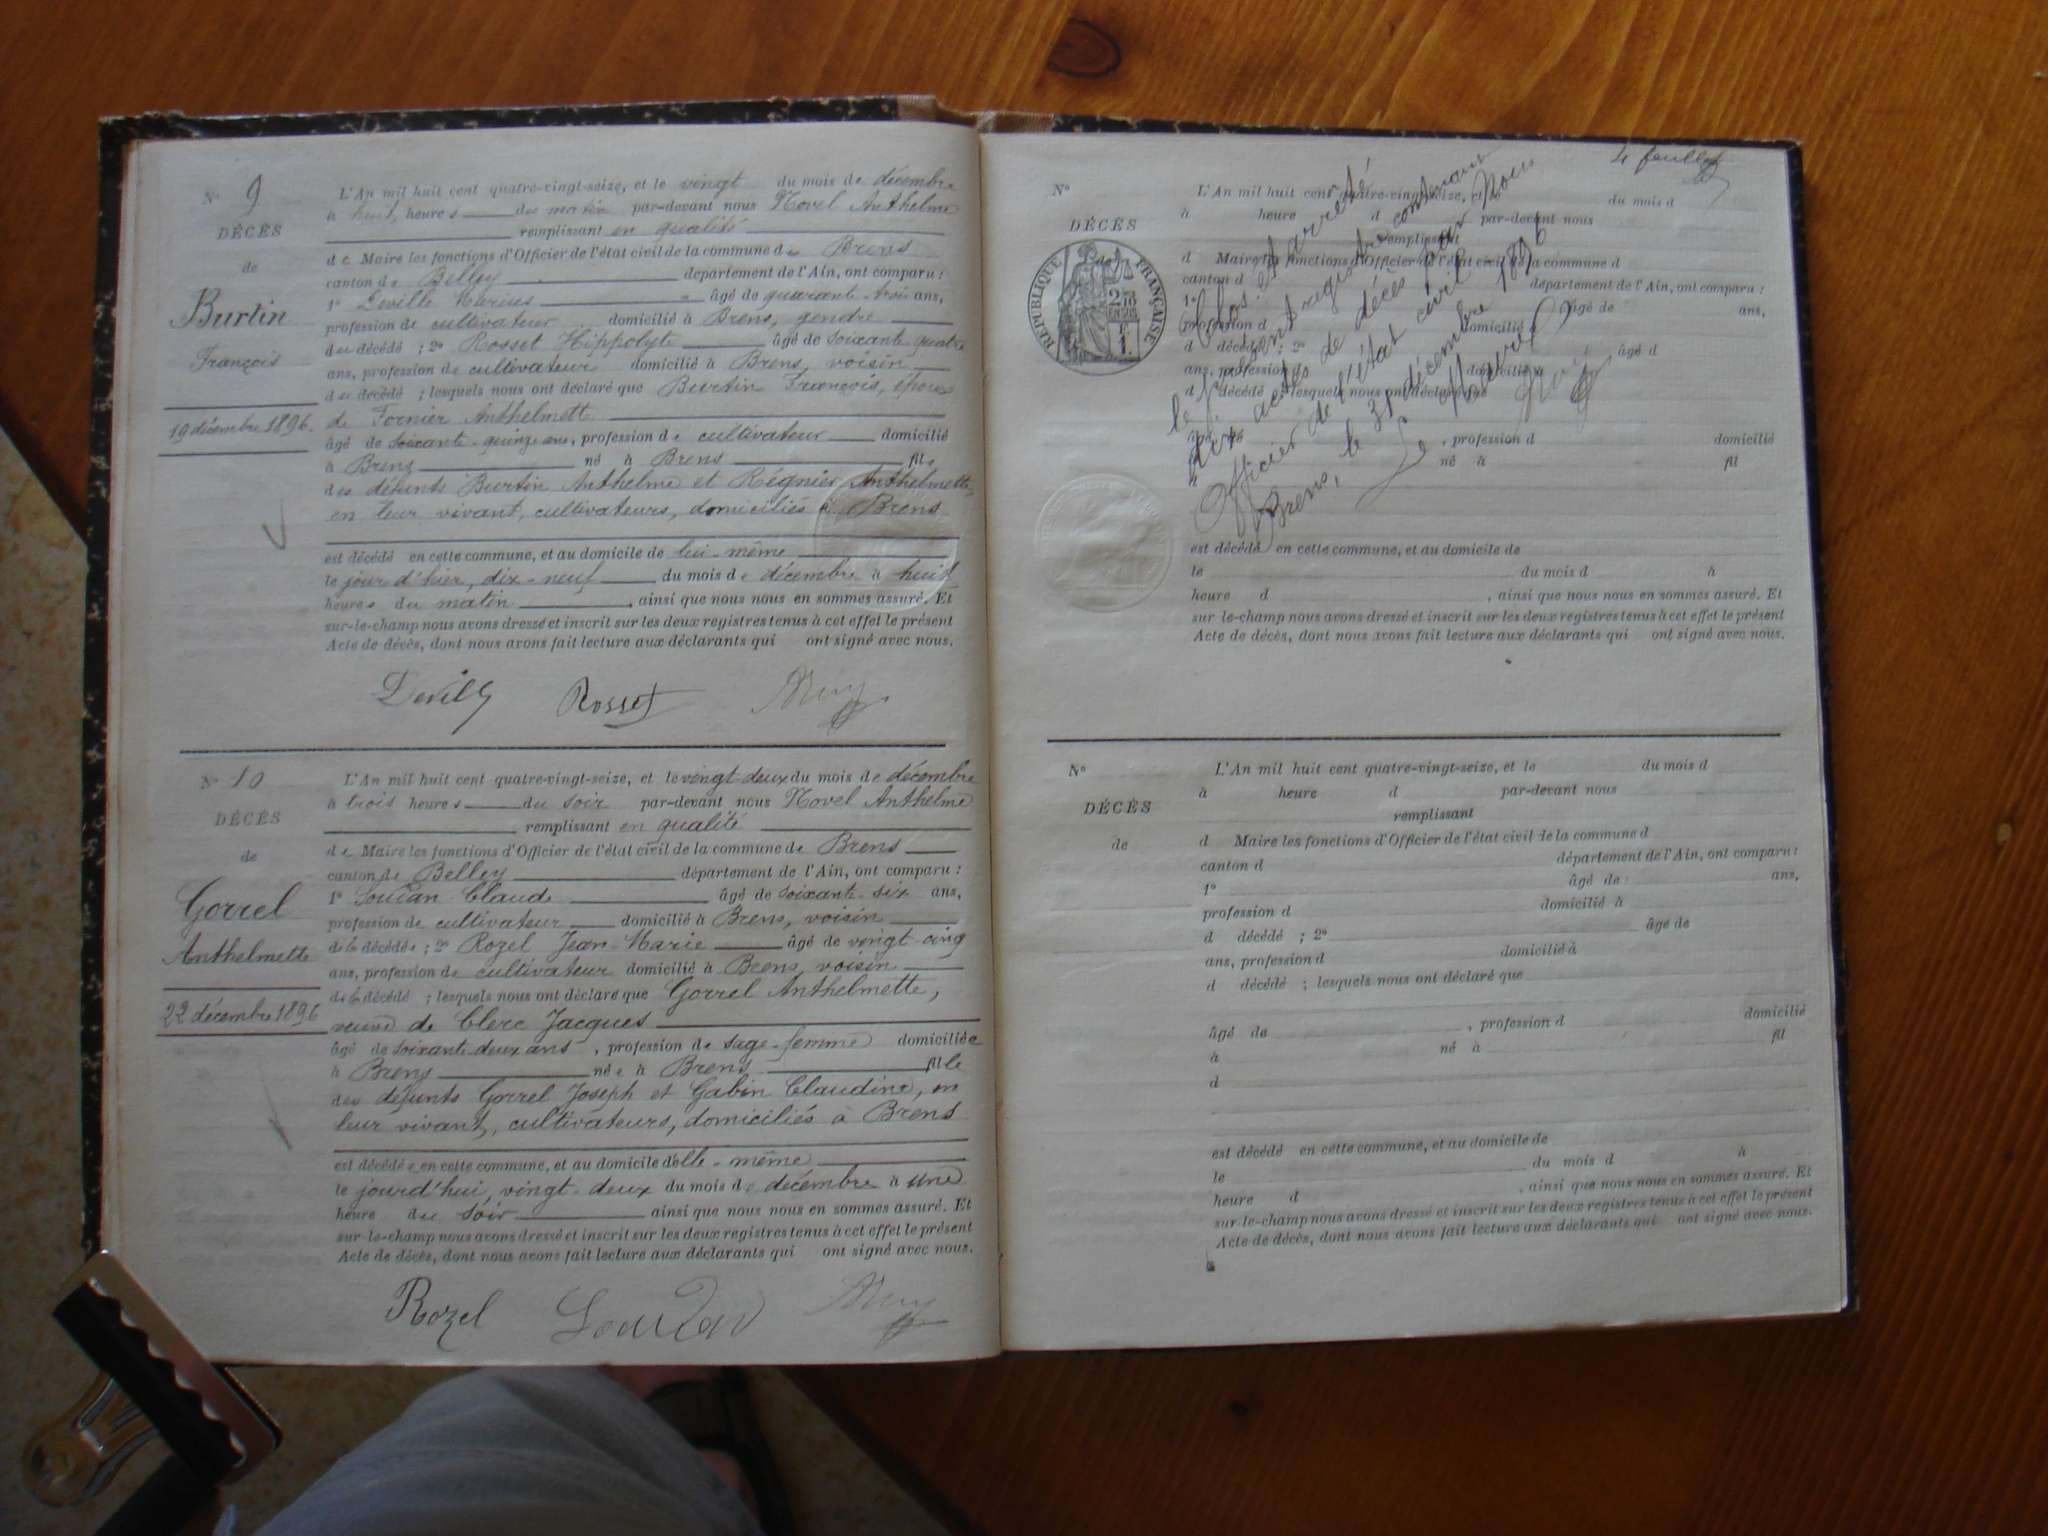 N° 9
DÉCÈS
de
Burtin
François
19 décembre 1896.
L'An mil huit cent quatre-vingt-seize, et le vingt du mois de décembre
à huit heures du matin par-devant nous Novel Anthelme
remplissant en qualité
de Maire les fonctions d'Officier de l'état civil de la commune de Brens
canton de Belley département de l'Ain, ont comparu :
1° Deville Marius âgé de quarante-trois ans,
profession de cultivateur domicilié à Brens, gendre
du décédé ; 2° Rosset Hippolyte âgé de soixante-quatre
ans, profession de cultivateur domicilié à Brens, voisin
du décédé ; lesquels nous ont déclaré que Burtin François, époux
de Fornier Anthelmette
âgé de soixante-quinze ans, profession de cultivateur domicilié
à Brens né à Brens fils
des défunts Burtin Anthelme et Régnier Anthelmette,
en leur vivant, cultivateurs, domiciliés à Brens
est décédé en cette commune, et au domicile de lui-même
le jour d'hier, dix-neuf du mois de décembre à huit
heures du matin, ainsi que nous nous en sommes assuré. Et
sur-le-champ nous avons dressé et inscrit sur les deux registres tenus à cet effet le présent
Acte de décès, dont nous avons fait lecture aux déclarants qui ont signé avec nous.
Rosset
N° 10
DÉCÈS
de
Gorrel
Anthelmette
22 décembre 1896
L'An mil huit cent quatre-vingt-seize, et le vingt deux du mois de décembre
à trois heures du soir par-devant nous Novel Anthelme
remplissant en qualité
de Maire les fonctions d'Officier de l'état civil de la commune de Brens
canton de Belley département de l'Ain, ont comparu :
1° Loudan Claude âgé de soixante-six ans,
profession de cultivateur domicilié à Brens, voisin
de la décédée ; 2° Rozel Jean-Marie âgé de vingt-cinq
ans, profession de cultivateur domicilié à Brens, voisin
de la décédé ; lesquels nous ont déclaré que Gorrel Anthelmette,
veuve de Clerc Jacques
âgé de soixante-deux ans, profession de sage-femme domiciliée
à Brens née à Brens fille
des défunts Gorrel Joseph et Gabin Claudine, en
leur vivant, cultivateurs, domiciliés à Brens
est décédée en cette commune, et au domicile d'elle-même
le jourd'hui, vingt-deux du mois de décembre à une
heure du soir ainsi que nous nous en sommes assuré. Et
sur-le-champ nous avons dressé et inscrit sur les deux registres tenus à cet effet le présent
Acte de décès, dont nous avons fait lecture aux déclarants qui ont signé avec nous.
Rozel Loudan
4 feuillets
N°
DÉCÈS
de
RÉPUBLIQUE FRANÇAISE
L'An mil huit cent quatre-vingt-seize, et le du mois d
à heure d par-devant nous
remplissant
d Maire les fonctions d'Officier de l'état civil de la commune d
canton d département de l'Ain, ont comparu :
1° âgé de ans,
profession d domicilié à
d décédé ; 2° âgé d
ans, profession d domicilié à
d décédé ; lesquels nous ont déclaré que
, profession d domicilié
né à fil
est décédé en cette commune, et au domicile de
le du mois d à
heure d , ainsi que nous nous en sommes assuré. Et
sur-le-champ nous avons dressé et inscrit sur les deux registres tenus à cet effet le présent
Acte de décès, dont nous avons fait lecture aux déclarants qui ont signé avec nous.
Clos et arrêté
le présent registre contenant
dix actes de décès par Nous
Officier de l'état civil
Brens, le 31 décembre 1896
Le Maire
N°
DÉCÈS
de
L'An mil huit cent quatre-vingt-seize, et le du mois d
à heure d par-devant nous
remplissant
d Maire les fonctions d'Officier de l'état civil de la commune d
canton d département de l'Ain, ont comparu :
1° âgé de ans,
profession d domicilié à
d décédé ; 2° âgé de
ans, profession d domicilié à
d décédé ; lesquels nous ont déclaré que
âgé de , profession d domicilié
à né à fil
d
est décédé en cette commune, et au domicile de
le du mois d à
heure d , ainsi que nous nous en sommes assuré. Et
sur-le-champ nous avons dressé et inscrit sur les deux registres tenus à cet effet le présent
Acte de décès, dont nous avons fait lecture aux déclarants qui ont signé avec nous.